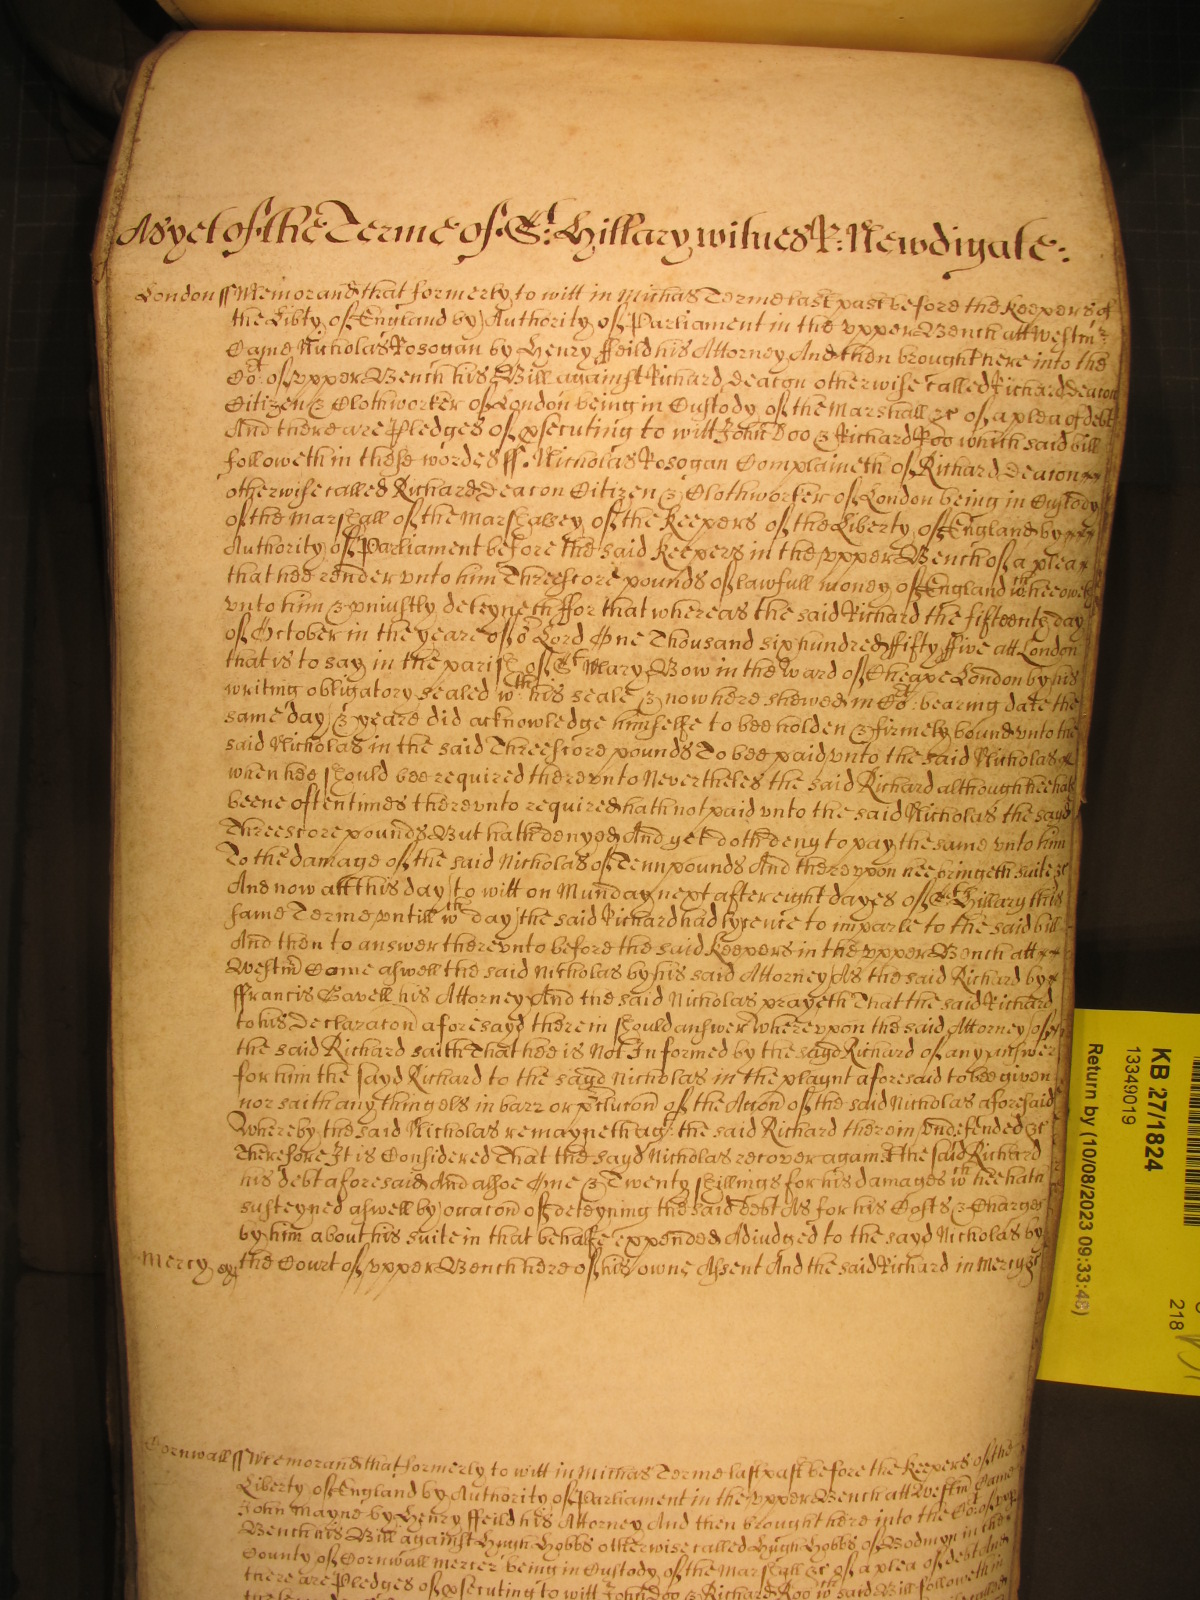 As yet of the Terme of St: Hillary witnes R: Newdigate:
London ss Memorand that formerly to witt in Michas Terme last past before the Keepers of
the Libty of England by Authority of Parliament in the vpper Bench att Westmr
Came Nicholas Rosogan by Henry ffeild his Attorney And then brought here into the
Cot of vpper Bench his Bill against Richard Deacon otherwise called Richard Deacon
Citizen & Clothworker of London being in Custody of the Marshall &c of a plea of debt
And there are Pledges of psecuting to witt John Doo & Richard Roo which said bill
followeth in these wordes ss. Nicholas Rosogan Complaineth of Richard Deacon
otherwise called Richard Deacon Citizen & Clothworker of London being in Custody
of the Marshall of the Marshalsey of the Keepers of the Liberty of England by
Authority of Parliament before the said Keepers in the vpper Bench of a plea
that hee render vnto him Threescore pounds of lawfull money of England wch hee oweth
vnto him & vniustly deteyneth ffor that whereas the said Richard the fifteenth day
of October in the yeare of or Lord One Thousand six hundred ffifty ffive att London
that is to say in the parish of St Mary Bow in the Ward of Cheape London by his
writing obligatory sealed wth his seale & now here shewed in Cot bearing date the
same day & yeare did acknowledge himselfe to bee holden & firmely bound vnto the
said Nicholas in the said Threescore pounds To bee paid vnto the said Nicholas
when hee should bee required therevnto Nevertheles the said Richard although hee hath
beene oftentimes therevnto required hath not paid vnto the said Nicholas the sayd
Threescore pounds But hath denyed And yet doth deny to pay the same vnto him
To the damage of the said Nicholas of Tenn pounds And therevpon hee bringeth suite &c
And now att this day to witt on Munday next after eight dayes of St Hillary this
same Terme vntill wch day the said Richard had lycence to imparle to the said bill
And then to answer therevnto before the said Keepers in the vpper Bench att
Westmr Came aswell the said Nicholas by his said Attorney As the said Richard by
ffrancis Gavell his Attorney And the said Nicholas prayeth That the said Richard
to his Declaracon aforesayd therein should answer Wherevpon the said Attorney of
the said Richard saith That hee is Not Informed by the sayd Richard of any answer
for him the sayd Richard to the sayd Nicholas in the playnt aforesaid to bee given
nor saith any thing els in barr or pclucon of the Accon of the said Nicholas aforesaid
Whereby the said Nicholas remayneth agt the said Richard therein vndefended &c
Therefore It is Considered That the sayd Nicholas recover against the said Richard
his debt aforesaid And alsoe One & Twenty shillings for his damages wch hee hath
susteyned aswell by occacon of deteyning the said debt As for his Costs & Charges
by him about his suite in that behalfe expended Adiudged to the sayd Nicholas by
Mercy
the Court of vpper Bench here of his owne Assent And the said Richard in Mercy &c
Cornwall ss Memorand that formerly to witt in Michas Terme last past before the Keepers of the
Liberty of England by Authority of Parliament in the vpper Bench att Westmr Came
John Mayne by Henry ffeild his Attorney And then brought here into the Cot of vpp
Bench his Bill against Hugh Hobbs otherwise called Hugh Hobbs of Bodmyn in the
County of Cornwall mercer being in Custody of the Marshall &c of a plea of debt And
there are Pledges of psecuting to witt John Doo & Richard Roo wch said Bill followeth in
KB 27/1824
13349019
Return by (10/08/2023 09:33:48)
218